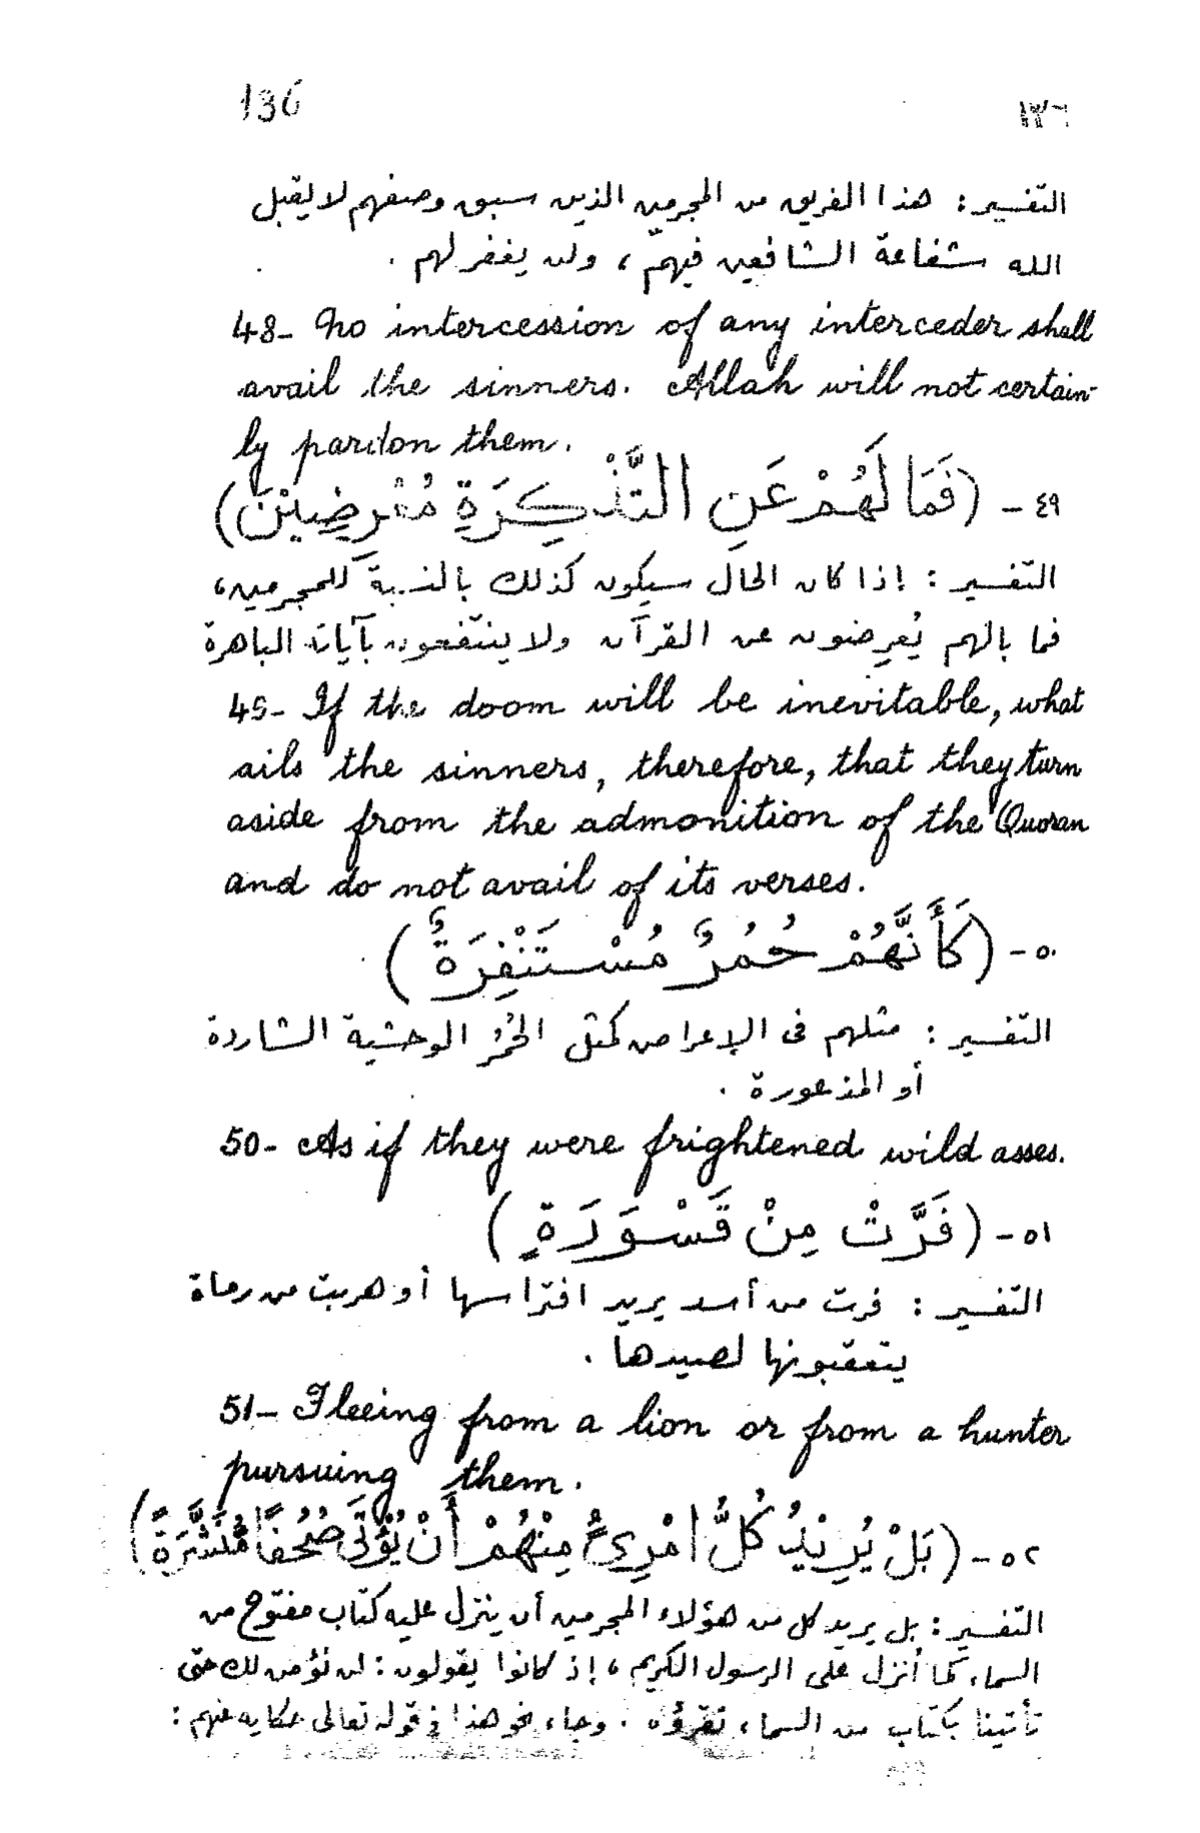 136
١٣٦
التفسير : هذا الفريق من المجرمين الذين سبق وصفهم لا يقبل
الله شفاعة الشافعين فيهم ، ولن يغفر لهم .
48- No intercession of any interceder shall
avail the sinners. Allah will not certain-
ly pardon them.
٤٩ - (فَمَا لَهُمْ عَنِ التَّذْكِرَةِ مُعْرِضِيْنَ)
التفسير : إذا كان الحال سيكون كذلك بالنسبة للمجرمين ،
فما بالهم يُعرِضون عن القرآن ولا ينتفعون بآياته الباهرة
49- If the doom will be inevitable, what
ails the sinners, therefore, that they turn
aside from the admonition of the Quoran
and do not avail of its verses.
٥٠ - (كَأَنَّهُمْ حُمُرٌ مُسْتَنْفِرَةٌ)
التفسير : مثلهم فى الإعراض كمثل الحُمُر الوحشية الشاردة
أو المذعورة .
50- As if they were frightened wild asses.
٥١ - (فَرَّتْ مِنْ قَسْوَرَةٍ)
التفسير : فرت من أسد يريد افتراسها أو هربت من رماة
يتعقبونها لصيدها .
51- Fleeing from a lion or from a hunter
pursuing them.
٥٢ - (بَلْ يُرِيْدُ كُلُّ امْرِئٍ مِنْهُمْ أَنْ يُؤْتَى صُحُفًا مُنَشَّرَةً)
التفسير : بل يريد كل من هؤلاء المجرمين أن ينزل عليه كتاب مفتوح من
السماء كما أنزل على الرسول الكريم ، إذ كانوا يقولون : لن نؤمن لك حتى
تأتينا بكتاب من السماء نقرؤه . وجاء نحو هذا فى قوله تعالى حكاية عنهم :